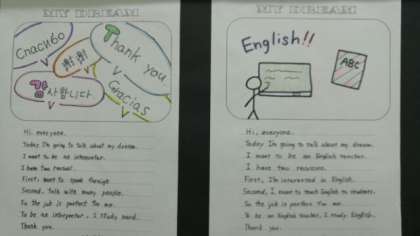 MY DREAM
Спасибо
謝謝
Thank you
감사합니다.
Gracias
Hi, everyone.
Today I'm going to talk about my dream.
I want to be an interpreter.
I have two reasons.
First, I want to speak foreign
Second, talk with many people.
So the job is perfect for me.
To be an interpreter, I study hard.
Thank you.
MY DREAM
English!!
ABC
Hi, everyone.
Today I'm going to talk about my dream.
I want to be an English teacher.
I have two reasons.
First, I'm interested in English.
Second, I want to teach English to students.
So the job is perfect for me.
To be an English teacher, I study English.
Thank you.